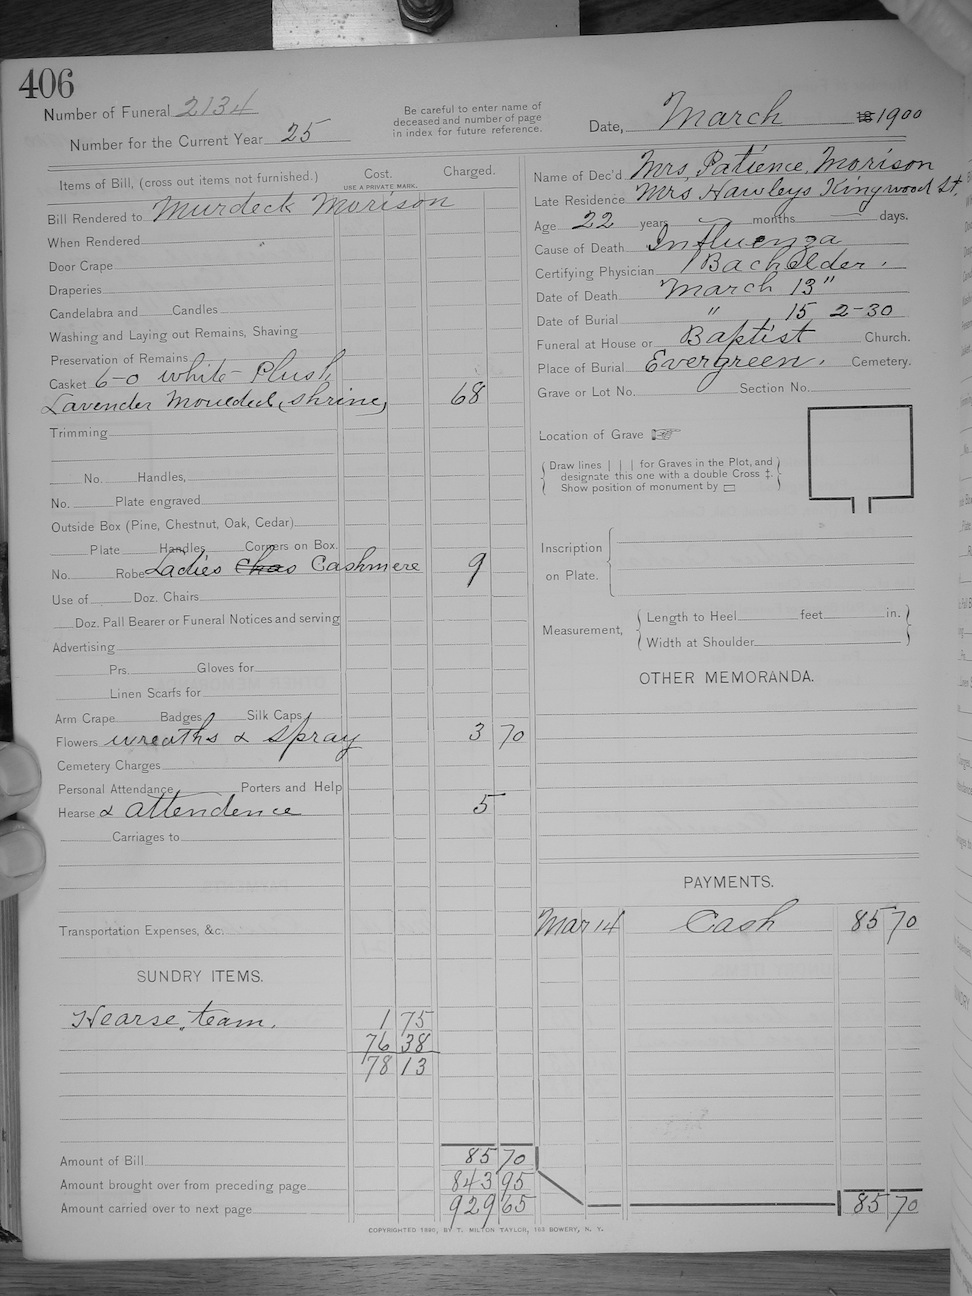 406
Number of Funeral 2134
Number for the Current Year 25
Be careful to enter name of
deceased and number of page
in index for future reference.
Date, March 1900
Items of Bill, (cross out items not furnished.) Cost. Charged.
USE A PRIVATE MARK.
Bill Rendered to Murdeck Morison
When Rendered
Door Crape
Draperies
Candelabra and Candles
Washing and Laying out Remains, Shaving
Preservation of Remains
Casket 6-0 white Plush
Lavender Moulded (shrine) 68
Trimming
No. Handles,
No. Plate engraved
Outside Box (Pine, Chestnut, Oak, Cedar)
Plate Handles Corners on Box.
No. Robe Ladies Cashmere 9
Use of Doz. Chairs
Doz. Pall Bearer or Funeral Notices and serving
Advertising
Prs. Gloves for
Linen Scarfs for
Arm Crape Badges Silk Caps
Flowers wreaths & Spray 3 70
Cemetery Charges
Personal Attendance Porters and Help
Hearse & attendence 5
Carriages to
Transportation Expenses, &c.
SUNDRY ITEMS.
Hearse, team. 1 75
76 38
78 13
Amount of Bill 85 70
Amount brought over from preceding page 843 95
Amount carried over to next page 929 65
Name of Dec'd Mrs, Patience, Morison
Late Residence Mrs Hawleys Kingwood St.
Age 22 years months days.
Cause of Death Influenza
Certifying Physician Bachelder.
Date of Death March 13"
Date of Burial " 15 2-30
Funeral at House or Baptist Church.
Place of Burial Evergreen. Cemetery.
Grave or Lot No. Section No.
Location of Grave
Draw lines | | | for Graves in the Plot, and
designate this one with a double Cross ‡.
Show position of monument by
Inscription
on Plate.
Measurement, Length to Heel feet in.
Width at Shoulder
OTHER MEMORANDA.
PAYMENTS.
Mar 14 Cash 85 70
85 70
COPYRIGHTED 1890, BY T. MILTON TAYLOR, 163 BOWERY, N. Y.